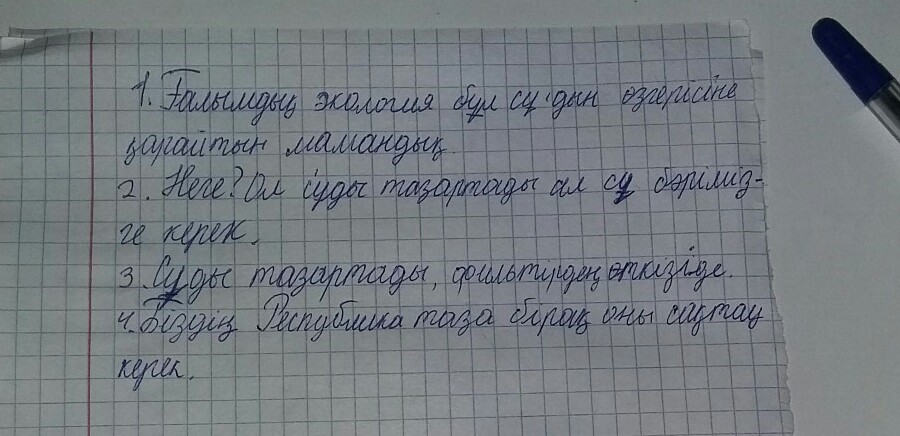 1. Ғалымдық экология бұл су'дын өзгерісіне
қарайтын мамандық.
2. Неге? Ол суды тазартады ал су бәріміз-
ге керек.
3. Суды тазартады, фильтірден өткізіде.
4. Біздің Республика таза бірақ оны сақтау
керек.